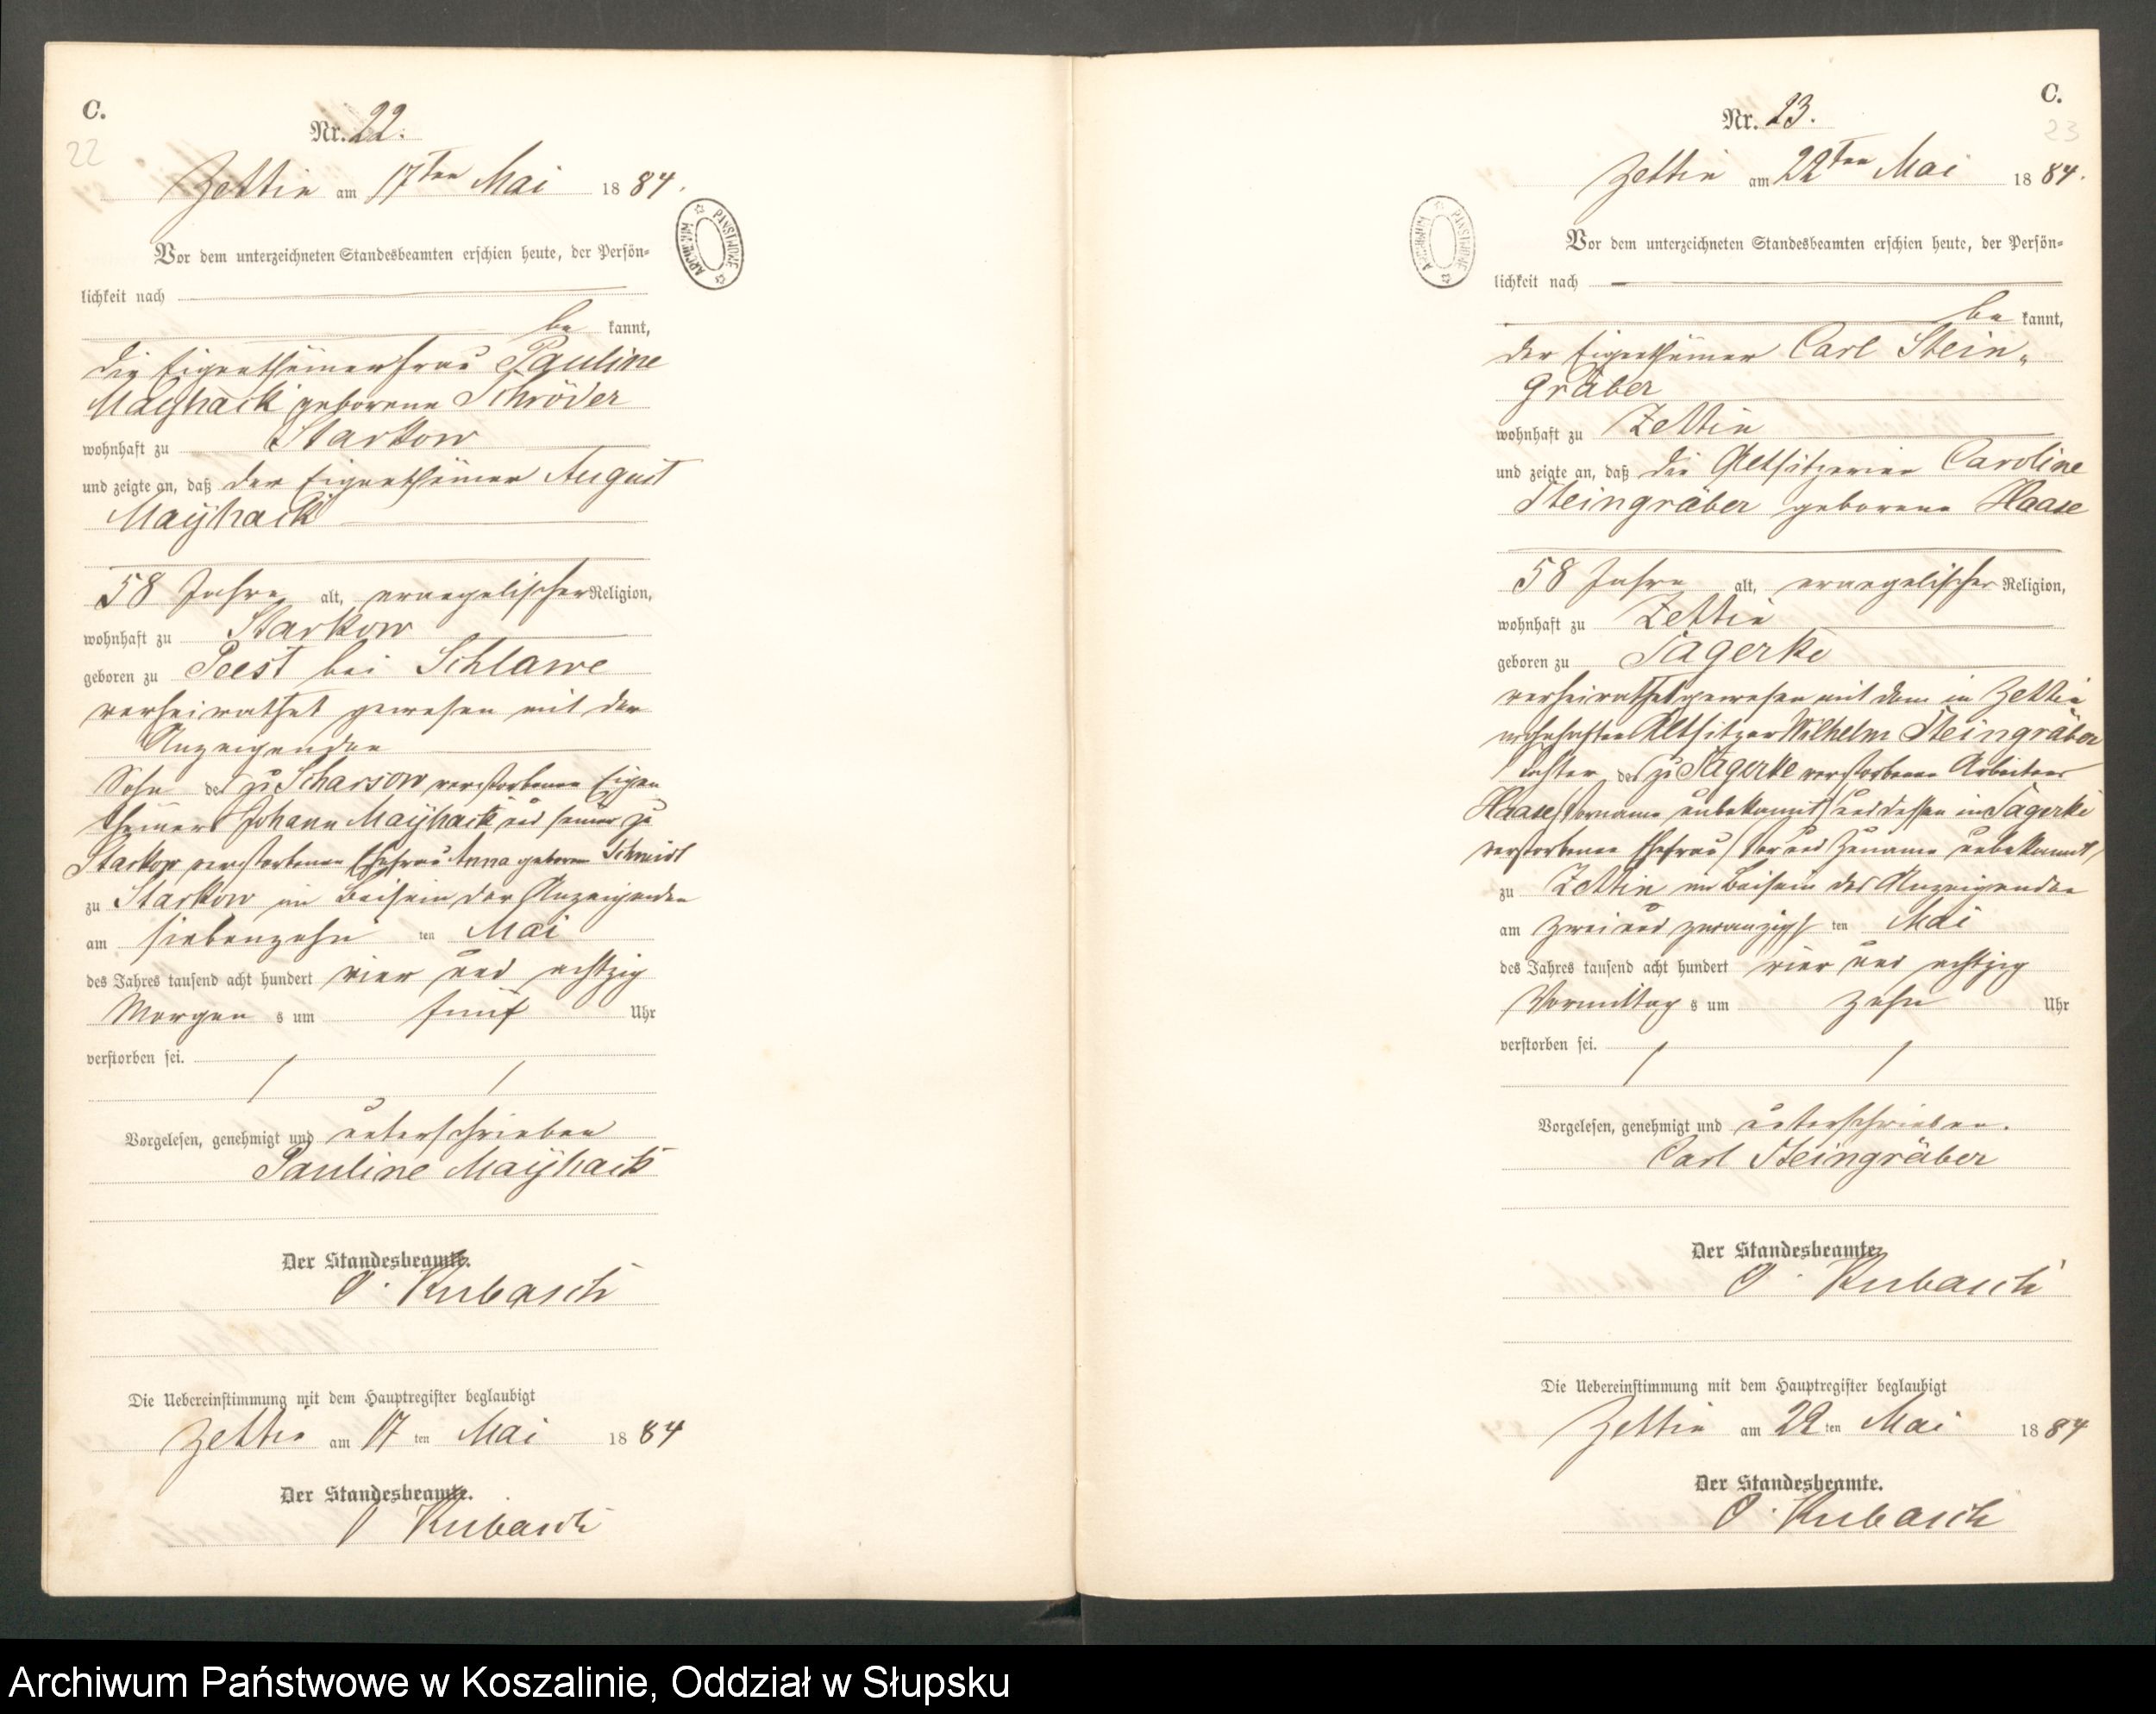 C.
22
Nr. 22.
Zettin am 17ten Mai 1884.
Vor dem unterzeichneten Standesbeamten erschien heute, der Persön-
lichkeit nach
be kannt,
die Eigenthümerfrau Pauline
Mayhack geborene Schröder
wohnhaft zu Starkow
und zeigte an, daß der Eigenthümer August
Mayhack
58 Jahre alt, evangelischer Religion,
wohnhaft zu Starkow
geboren zu Peest bei Schlawe
verheirathet gewesen mit der
Anzeigenden
Sohn des zu Scharsow verstorbenen Eigen
thümers Johann Mayhack und seiner zu
Starkow verstorbenen Ehefrau Anna geboren Schmidt
zu Starkow im Beisein der Anzeigenden
am siebenzehn ten Mai
des Jahres tausend acht hundert vier und achtzig
Morgen s um fünf Uhr
verstorben sei.
Vorgelesen, genehmigt und unterschrieben
Pauline Mayhack
Der Standesbeamte.
O. Kubasch
Die Uebereinstimmung mit dem Hauptregister beglaubigt
Zettin am 17 ten Mai 1884
Der Standesbeamte.
O Kubasch
ARCHIWUM PAŃSTWOWE
C.
23
Nr. 23.
Zettin am 22ten Mai 1884.
Vor dem unterzeichneten Standesbeamten erschien heute, der Persön-
lichkeit nach
be kannt,
der Eigenthümer Carl Stein-
gräber
wohnhaft zu Zettin
und zeigte an, daß die Altsitzerin Caroline
Steingräber geborene Haase
58 Jahre alt, evangelischer Religion,
wohnhaft zu Zettin
geboren zu Sagerke
verheirathet gewesen mit dem in Zettin
wohnhaften Altsitzer Wilhelm Steingräber
Tochter des zu Sagerke verstorbenen Arbeiters
Haase (Vorname unbekannt) und dessen in Sagerke
verstorbenen Ehefrau (Vor und Zuname unbekannt)
zu Zettin im Beisein des Anzeigenden
am zwei und zwanzigs ten Mai
des Jahres tausend acht hundert vier und achtzig
Vormittag s um zehn Uhr
verstorben sei.
Vorgelesen, genehmigt und unterschrieben.
Carl Steingräber
Der Standesbeamte.
O. Kubasch
Die Uebereinstimmung mit dem Hauptregister beglaubigt
Zettin am 22 ten Mai 1884
Der Standesbeamte.
O. Kubasch
ARCHIWUM PAŃSTWOWE
Archiwum Państwowe w Koszalinie, Oddział w Słupsku